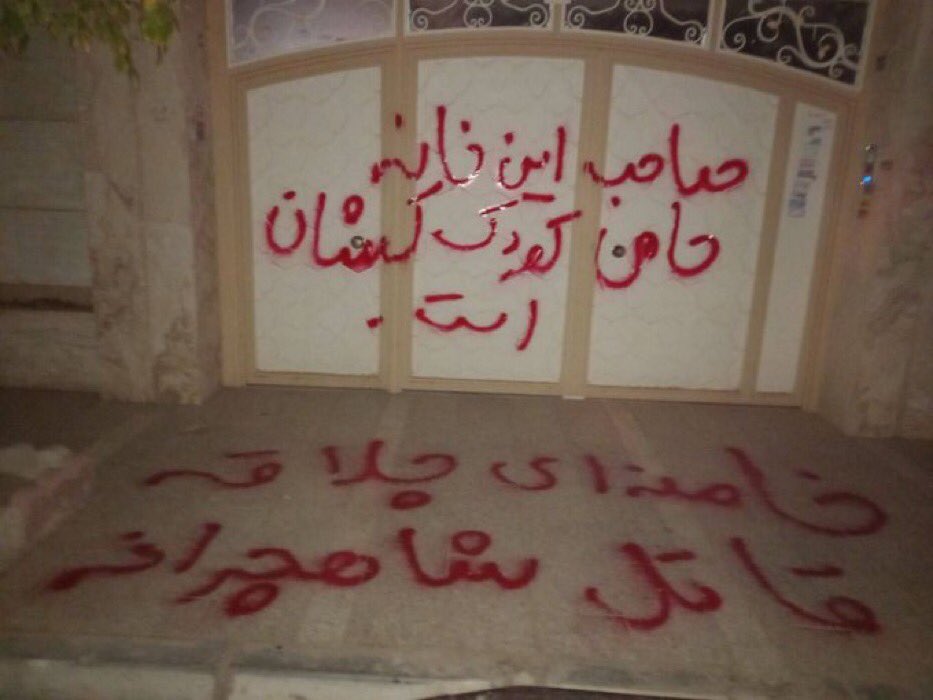 صاحب این خانه
حامی کودک کشان
است.
خامنه‌ای چلاقه
قاتل شاهچراغه